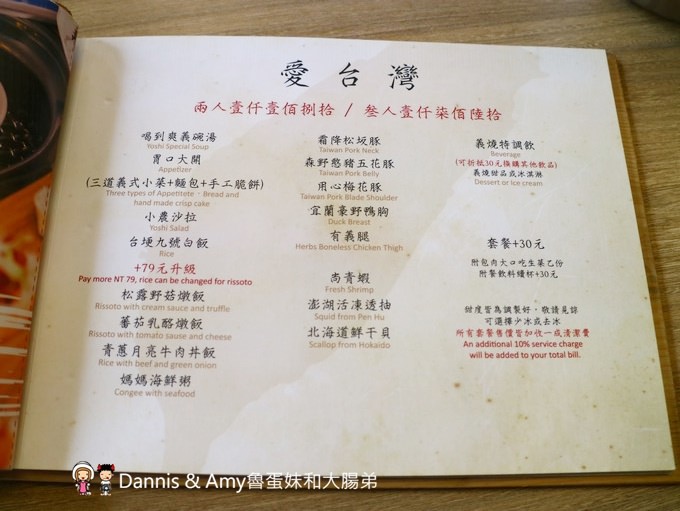 愛台灣
兩人壹仟壹佰捌拾 / 叁人壹仟柒佰陸拾
喝到爽義碗湯
Yoshi Special Soup
胃口大開
Appetizer
(三道義式小菜+麵包+手工脆餅)
Three types of Appetitote，Bread and
hand made crisp cake
小農沙拉
Yoshi Salad
台埂九號白飯
Rice
+79元升級
Pay more NT 79, rice can be changed for rissoto
松露野菇燉飯
Risotto with cream sauce and truffle
蕃茄乳酪燉飯
Risotto with tomato sause and cheese
青蔥月亮牛肉丼飯
Rice with beef and green onion
媽媽海鮮粥
Congee with seafood
霜降松坂豚
Taiwan Pork Neck
森野憨豬五花豚
Taiwan Pork Belly
用心梅花豚
Taiwan Pork Blade Shoulder
宜蘭豪野鴨胸
Duck Breast
有義腿
Herbs Boneless Chicken Thigh
尚青蝦
Fresh Shrimp
澎湖活凍透抽
Squid from Pen Hu
北海道鮮干貝
Scallop from Hokaido
義燒特調飲
Beverage
(可折抵30元換購其他飲品)
義燒甜品或冰淇淋
Dessert or Ice cream
套餐+30元
附包肉大口吃生菜乙份
附餐飲料續杯+30元
甜度皆為調製好，敬請見諒
可選擇少冰或去冰
所有套餐售價皆加收一成清潔費
An additional 10% service charge
will be added to your total bill.
Dannis & Amy魯蛋妹和大腸弟